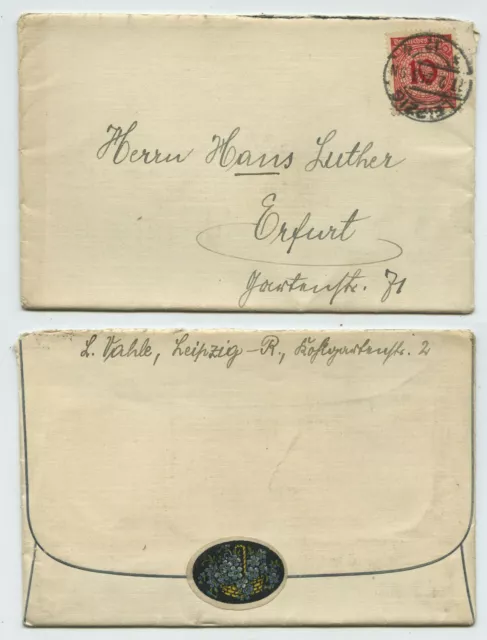 10
LEIPZIG
Herrn Hans Luther
Erfurt
Gartenstr. 71
L. Vahle, Leipzig-R., Kohlgartenstr. 2